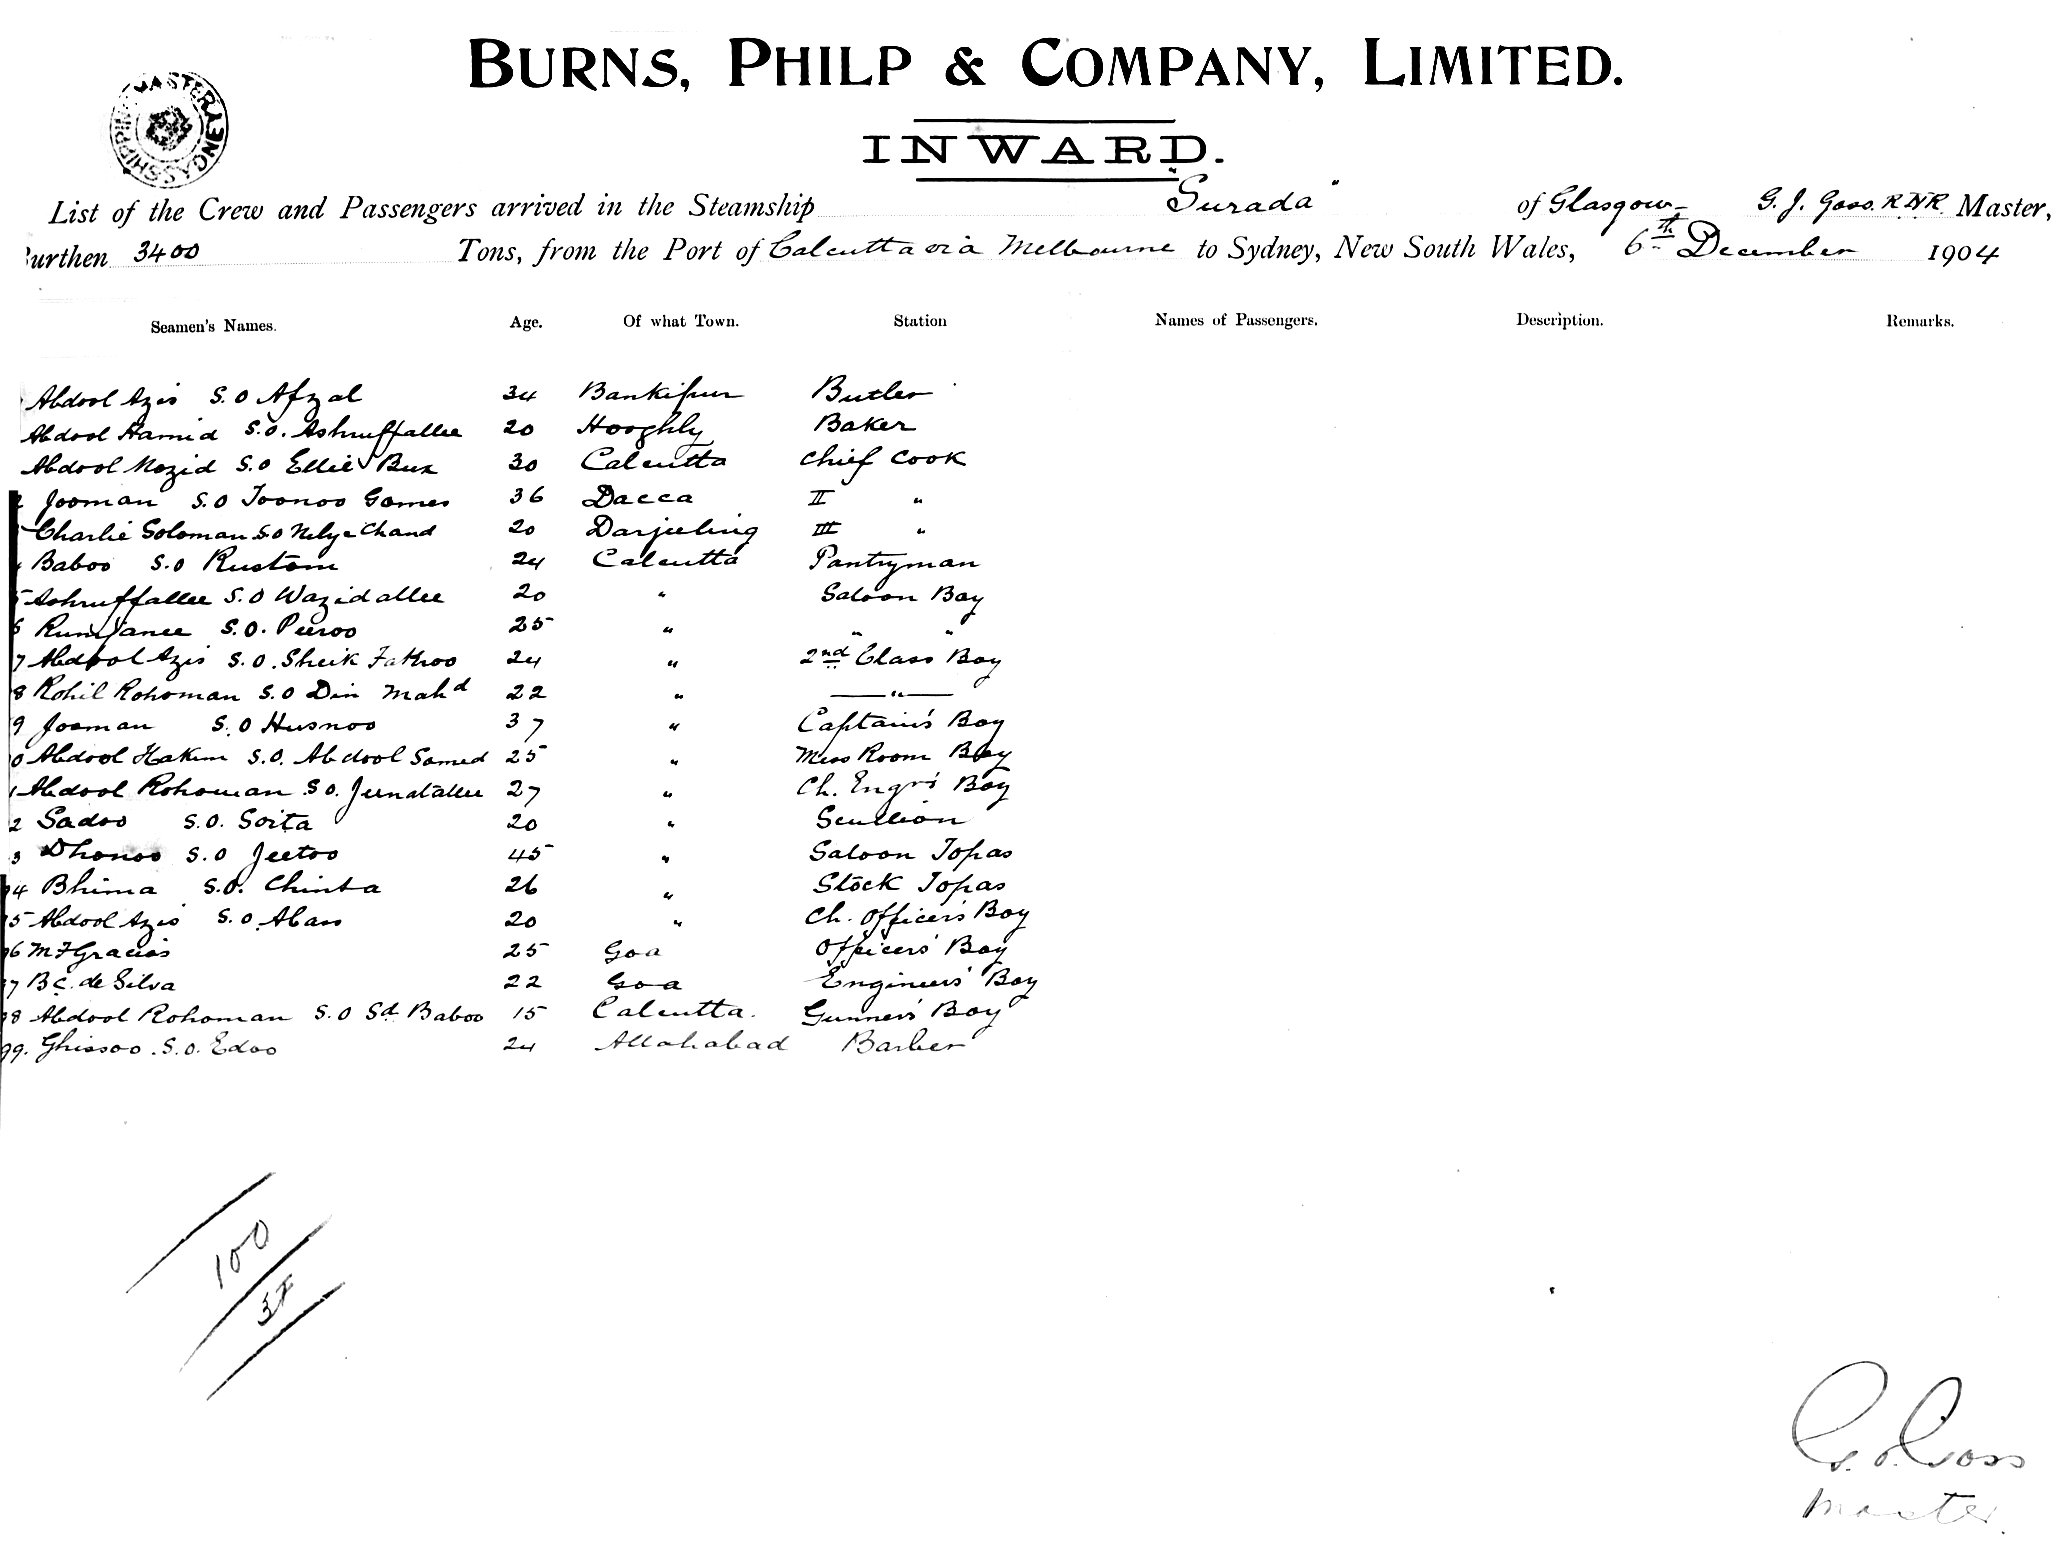 BURNS, PHILP & COMPANY, LIMITED.
INWARD.
List of the Crew and Passengers arrived in the Steamship "Surada" of Glasgow G. J. Goss. R.N.R. Master,
Burthen 3400 Tons, from the Port of Calcutta via Melbourne to Sydney, New South Wales, 6th December 1904
Seamen's Names. Age. Of what Town. Station Names of Passengers. Description. Remarks.
Abdool Azis S.O Afzal 34 Bankipur Butler
Abdool Hamid S.O. Ashruffallee 20 Hooghly Baker
Abdool Mozid S.O Ellie Bux 30 Calcutta Chief Cook
Jooman S.O Toonoo Gomes 36 Dacca II "
Charlie Soloman S.O Chand 20 Darjeeling III "
Baboo S.O Rustom 24 Calcutta Pantryman
5 Ashruffallee S.O Wazidallee 20 " Saloon Boy
6 Rumjanee S.O. Peeroo 25 " " "
7 Abdool Azis S.O. Sheik Fathoo 24 " 2nd Class Boy
8 Rohil Rohoman S.O Din Mahd 22 " "
9 Jooman S.O Husnoo 37 " Captain's Boy
0 Abdool Hakim S.O. Abdool Samed 25 " Mess Room Boy
1 Abdool Rohoman S.O. Jeenatallee 27 " Ch. Engrs Boy
2 Sadoo S.O. Soita 20 " Scullion
3 Dhonoo S.O Jeetoo 45 " Saloon Topas
94 Bhima S.O. Chinta 26 " Stock Topas
95 Abdool Azis S.O. Abass 20 " Ch. Officer's Boy
96 M F Gracias 25 Goa Officers' Boy
97 B.C. de Silva 22 Goa Engineers' Boy
98 Abdool Rohoman S.O Sd. Baboo 15 Calcutta. Gunner's Boy
99. Ghissoo S.O. Edoo 24 Allahabad Barber
100
G. J. Goss
Master.